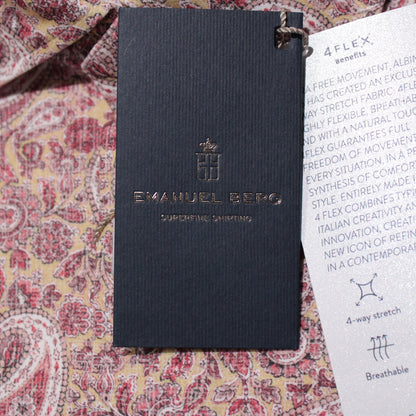 EMANUEL BERG
SUPERFINE SHIRTING
4FLEX
Benefits
A FREE MOVEMENT, ALBIN
HAS CREATED AN EXCLU
WAY STRETCH FABRIC. 4FLE
HIGHLY FLEXIBLE, BREATHAB
ND WITH A NATURAL TOU
FLEX GUARANTEES FULL
FREEDOM OF MOVEMENT
EVERY SITUATION, IN A DE
SYNTHESIS OF COMFO
STYLE. ENTIRELY MADE
4 FLEX COMBINES TYP
ITALIAN CREATIVITY AN
INNOVATION, CREA
NEW ICON OF REFIN
IN A CONTEMPORA
4-way stretch
Breathable